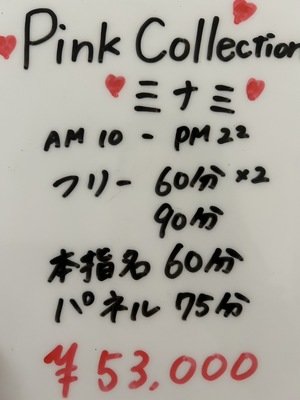 Pink Collection
ミナミ
AM10 - PM22
フリー 60分×2
90分
本指名 60分
パネル 75分
¥53,000